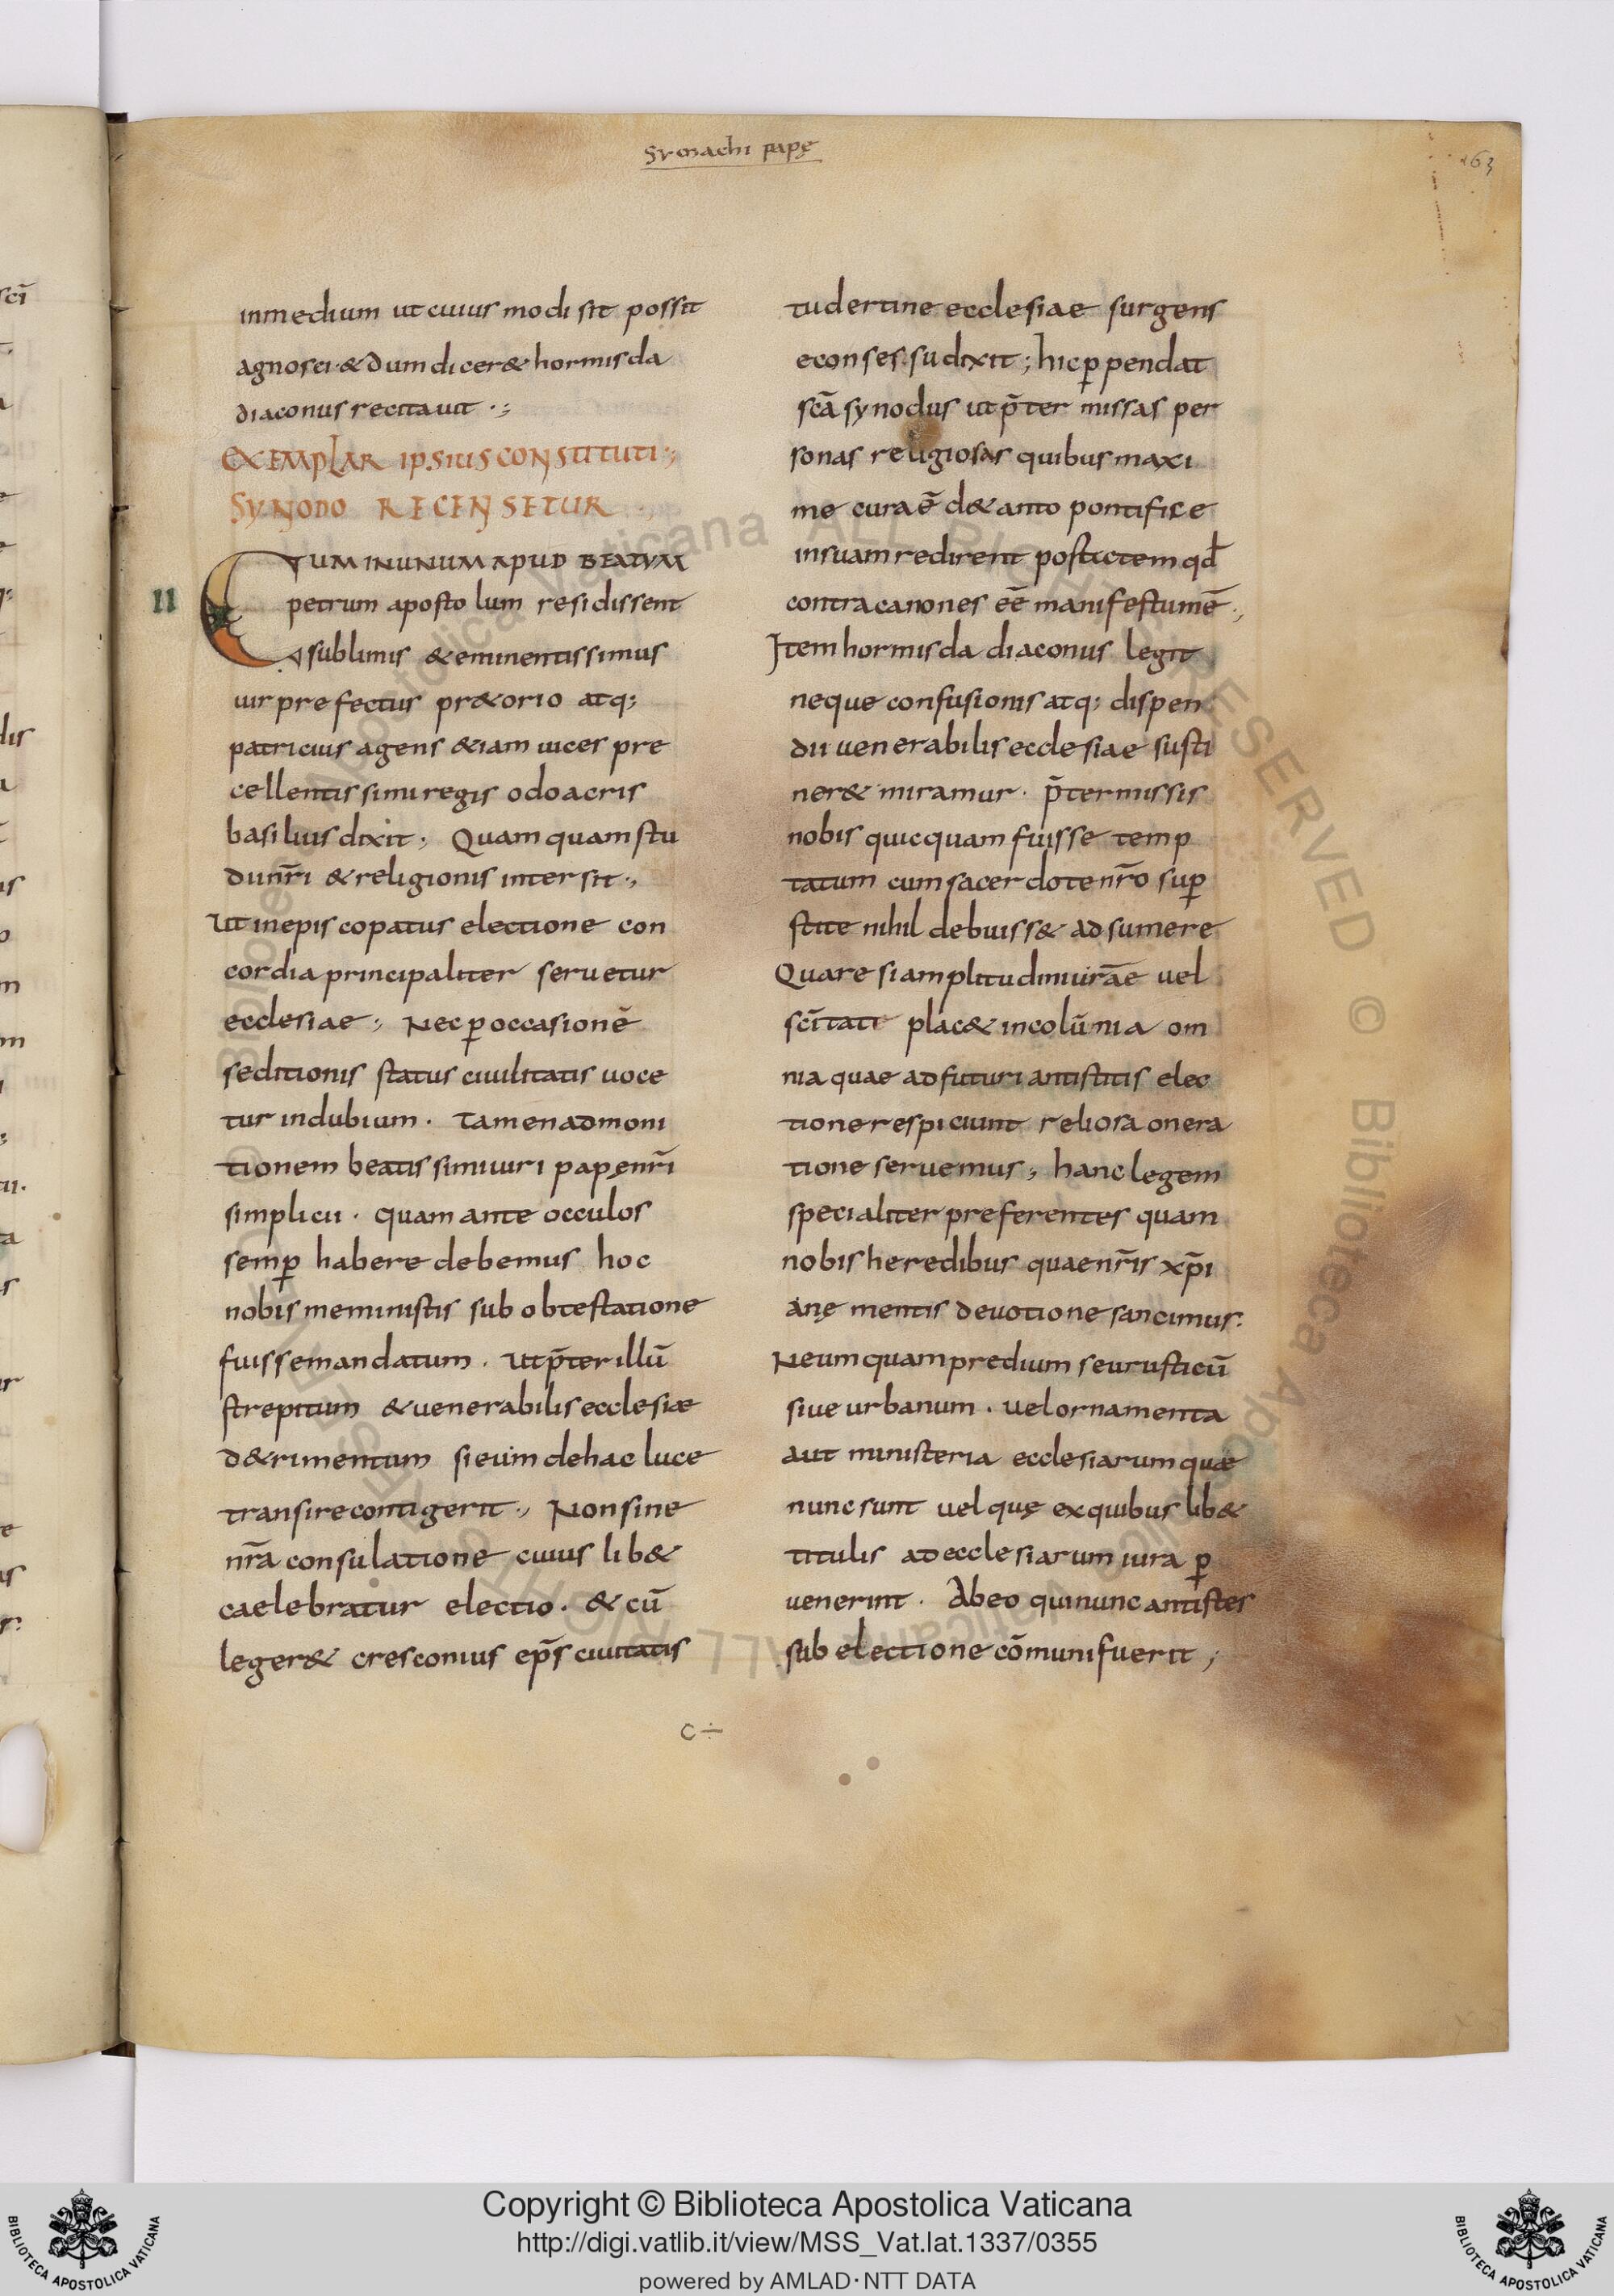 Symachi papę
163
inmedium ut cuius modi sit possit
agnosci & dum dicer& hormisda
diaconus recitauit .;
EXEMPLAR IPSIUS CONSTITUTI .;
SYNODO RECENSETUR
II
CUM IN UNUM APUD BEATUM
petrum apostolum residissent
sublimis & eminentissimus
uir prefectus pr&orio atq;
patricius agens &iam uices pre
cellentissimi regis odoacris
basilius dixit; Quamquam stu
dii nr̄i & religionis intersit.,
Ut in episcopatus electione con
cordia principaliter seruetur
ecclesiae; Nec ꝑ occasionē
seditionis status ciuilitatis uoce
tur in dubium. Tamen admoni
tionem beatissimi uiri papę nr̄i
simplicii. quam ante occulos
semꝑ habere debemus hoc
nobis meministis sub obtestatione
fuisse mandatum. ut p̄ter illū
strepitum & uenerabilis ecclesiæ
d&rimentum si eum de hac luce
transire contigerit., Non sine
nr̄a consulatione cuius lib&
caelebratur electio. & cū
leger& cresconius ep̄s ciuitatis
tudertine ecclesiae surgens
econses.su dixit; hic ꝑpendat
sc̄a synodus ut p̄termissas per
sonas religiosas quibus maxi
me cura ē d& anto pontifice
in suam redirent postictem qd̄
contra canones eē manifestum ē.,
Item hormisda diaconus legit
neque confusionis atq; dispen
dii uenerabilis ecclesiae susti
ner& miramur. p̄termissis
nobis quicquam fuisse temp
tatum cum sacerdote nr̄o suꝑ
stite nihil debuiss& adsumere
Quare si amplitudini uir̄ae uel
sc̄itati plac& incolūnia om
nia quae ad futuri antistitis elec
tione respiciunt reliosa onera
tione seruemus; hanc legem
specialiter preferentes quam
nobis heredibus quae nr̄is xp̄i
anę mentis deuotione sancimus.
Ne umquam predium seu rusticū
siue urbanum. uel ornamenta
aut ministeria ecclesiarum quæ
nunc sunt uel quę ex quibus lib&
titulis ad ecclesiarum iura ꝑ
uenerint. Ab eo qui nunc antistes
sub electione cōmuni fuerit;
c÷
Copyright © Biblioteca Apostolica Vaticana
http://digi.vatlib.it/view/MSS_Vat.lat.1337/0355
powered by AMLAD·NTT DATA
BIBLIOTECA APOSTOLICA VATICANA
BIBLIOTECA APOSTOLICA VATICANA